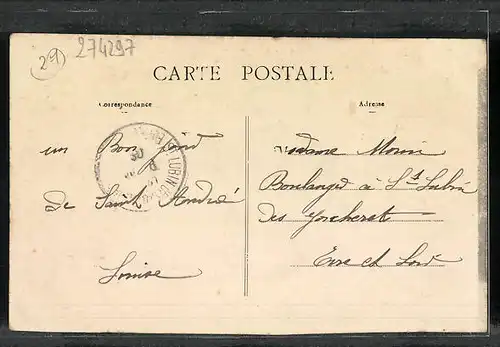 (29) 274297
CARTE POSTALE
Correspondance
Adresse
un Bonjour
de Saint André
Louise
Madame Morin
Boulanger à St Lubin
des Joncherets
Eure et Loir